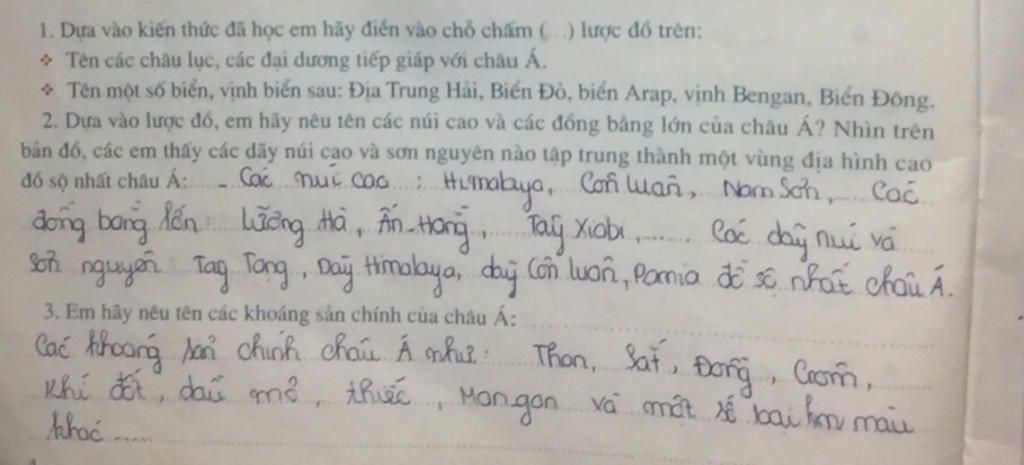 1. Dựa vào kiến thức đã học em hãy điền vào chỗ chấm (...) lược đồ trên:
❖ Tên các châu lục, các đại dương tiếp giáp với châu Á.
❖ Tên một số biển, vịnh biển sau: Địa Trung Hải, Biển Đỏ, biển Arap, vịnh Bengan, Biển Đông.
2. Dựa vào lược đồ, em hãy nêu tên các núi cao và các đồng bằng lớn của châu Á? Nhìn trên
bản đồ, các em thấy các dãy núi cao và sơn nguyên nào tập trung thành một vùng địa hình cao
đồ sộ nhất châu Á: - Các núi cao : Himalaya, Côn Luân, Nam Sơn,.... Các
đồng bằng lớn: Lưỡng Hà, Ấn-Hằng, Tây Xiabi,...... Các dãy núi và
sơn nguyên Tây Tạng, Dãy Himalaya, dãy Côn luân, Pamia đồ sộ nhất châu Á.
3. Em hãy nêu tên các khoáng sản chính của châu Á:
Các khoáng sản chính châu Á như: Than, Sắt, Đồng, Crom,
Khí đốt, dầu mỏ, thiếc, Mangan và một số loại kim màu
khác.....